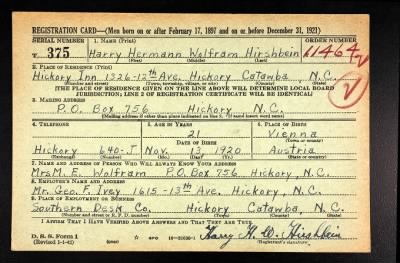 REGISTRATION CARD—(Men born on or after February 17, 1897 and on or before December 31, 1921)
SERIAL NUMBER 1. NAME (Print) ORDER NUMBER
T 375 Harry Hermann Wolfram Hirshbein 11464 V
(First) (Middle) (Last)
2. PLACE OF RESIDENCE (Print)
Hickory Inn 1326-12th Ave. Hickory Catawba, N.C.
(Number and street) (Town, township, village, or city) (County) (State)
[THE PLACE OF RESIDENCE GIVEN ON THE LINE ABOVE WILL DETERMINE LOCAL BOARD
JURISDICTION; LINE 2 OF REGISTRATION CERTIFICATE WILL BE IDENTICAL] V
3. MAILING ADDRESS
P.O. Box 756 Hickory N.C.
[Mailing address if other than place indicated on line 2. If same insert word same]
4. TELEPHONE 5. AGE IN YEARS 6. PLACE OF BIRTH
21 Vienna
DATE OF BIRTH (Town or county)
Hickory 640-J Nov. 13, 1920 Austria
(Exchange) (Number) (Mo.) (Day) (Yr.) (State or country)
7. NAME AND ADDRESS OF PERSON WHO WILL ALWAYS KNOW YOUR ADDRESS
Mrs M. E. Wolfram P.O. Box 756 Hickory, N.C.
8. EMPLOYER'S NAME AND ADDRESS
Mr. Geo. F. Ivey 1615-13th Ave. Hickory, N.C.
9. PLACE OF EMPLOYMENT OR BUSINESS
Southern Desk Co. Hickory Catawba, N.C.
(Number and street or R. F. D. number) (Town) (County) (State)
I AFFIRM THAT I HAVE VERIFIED ABOVE ANSWERS AND THAT THEY ARE TRUE.
D. S. S. Form 1
(Revised 1-1-42) GPO Harry H. W. Hirshbein
(Registrant's signature)